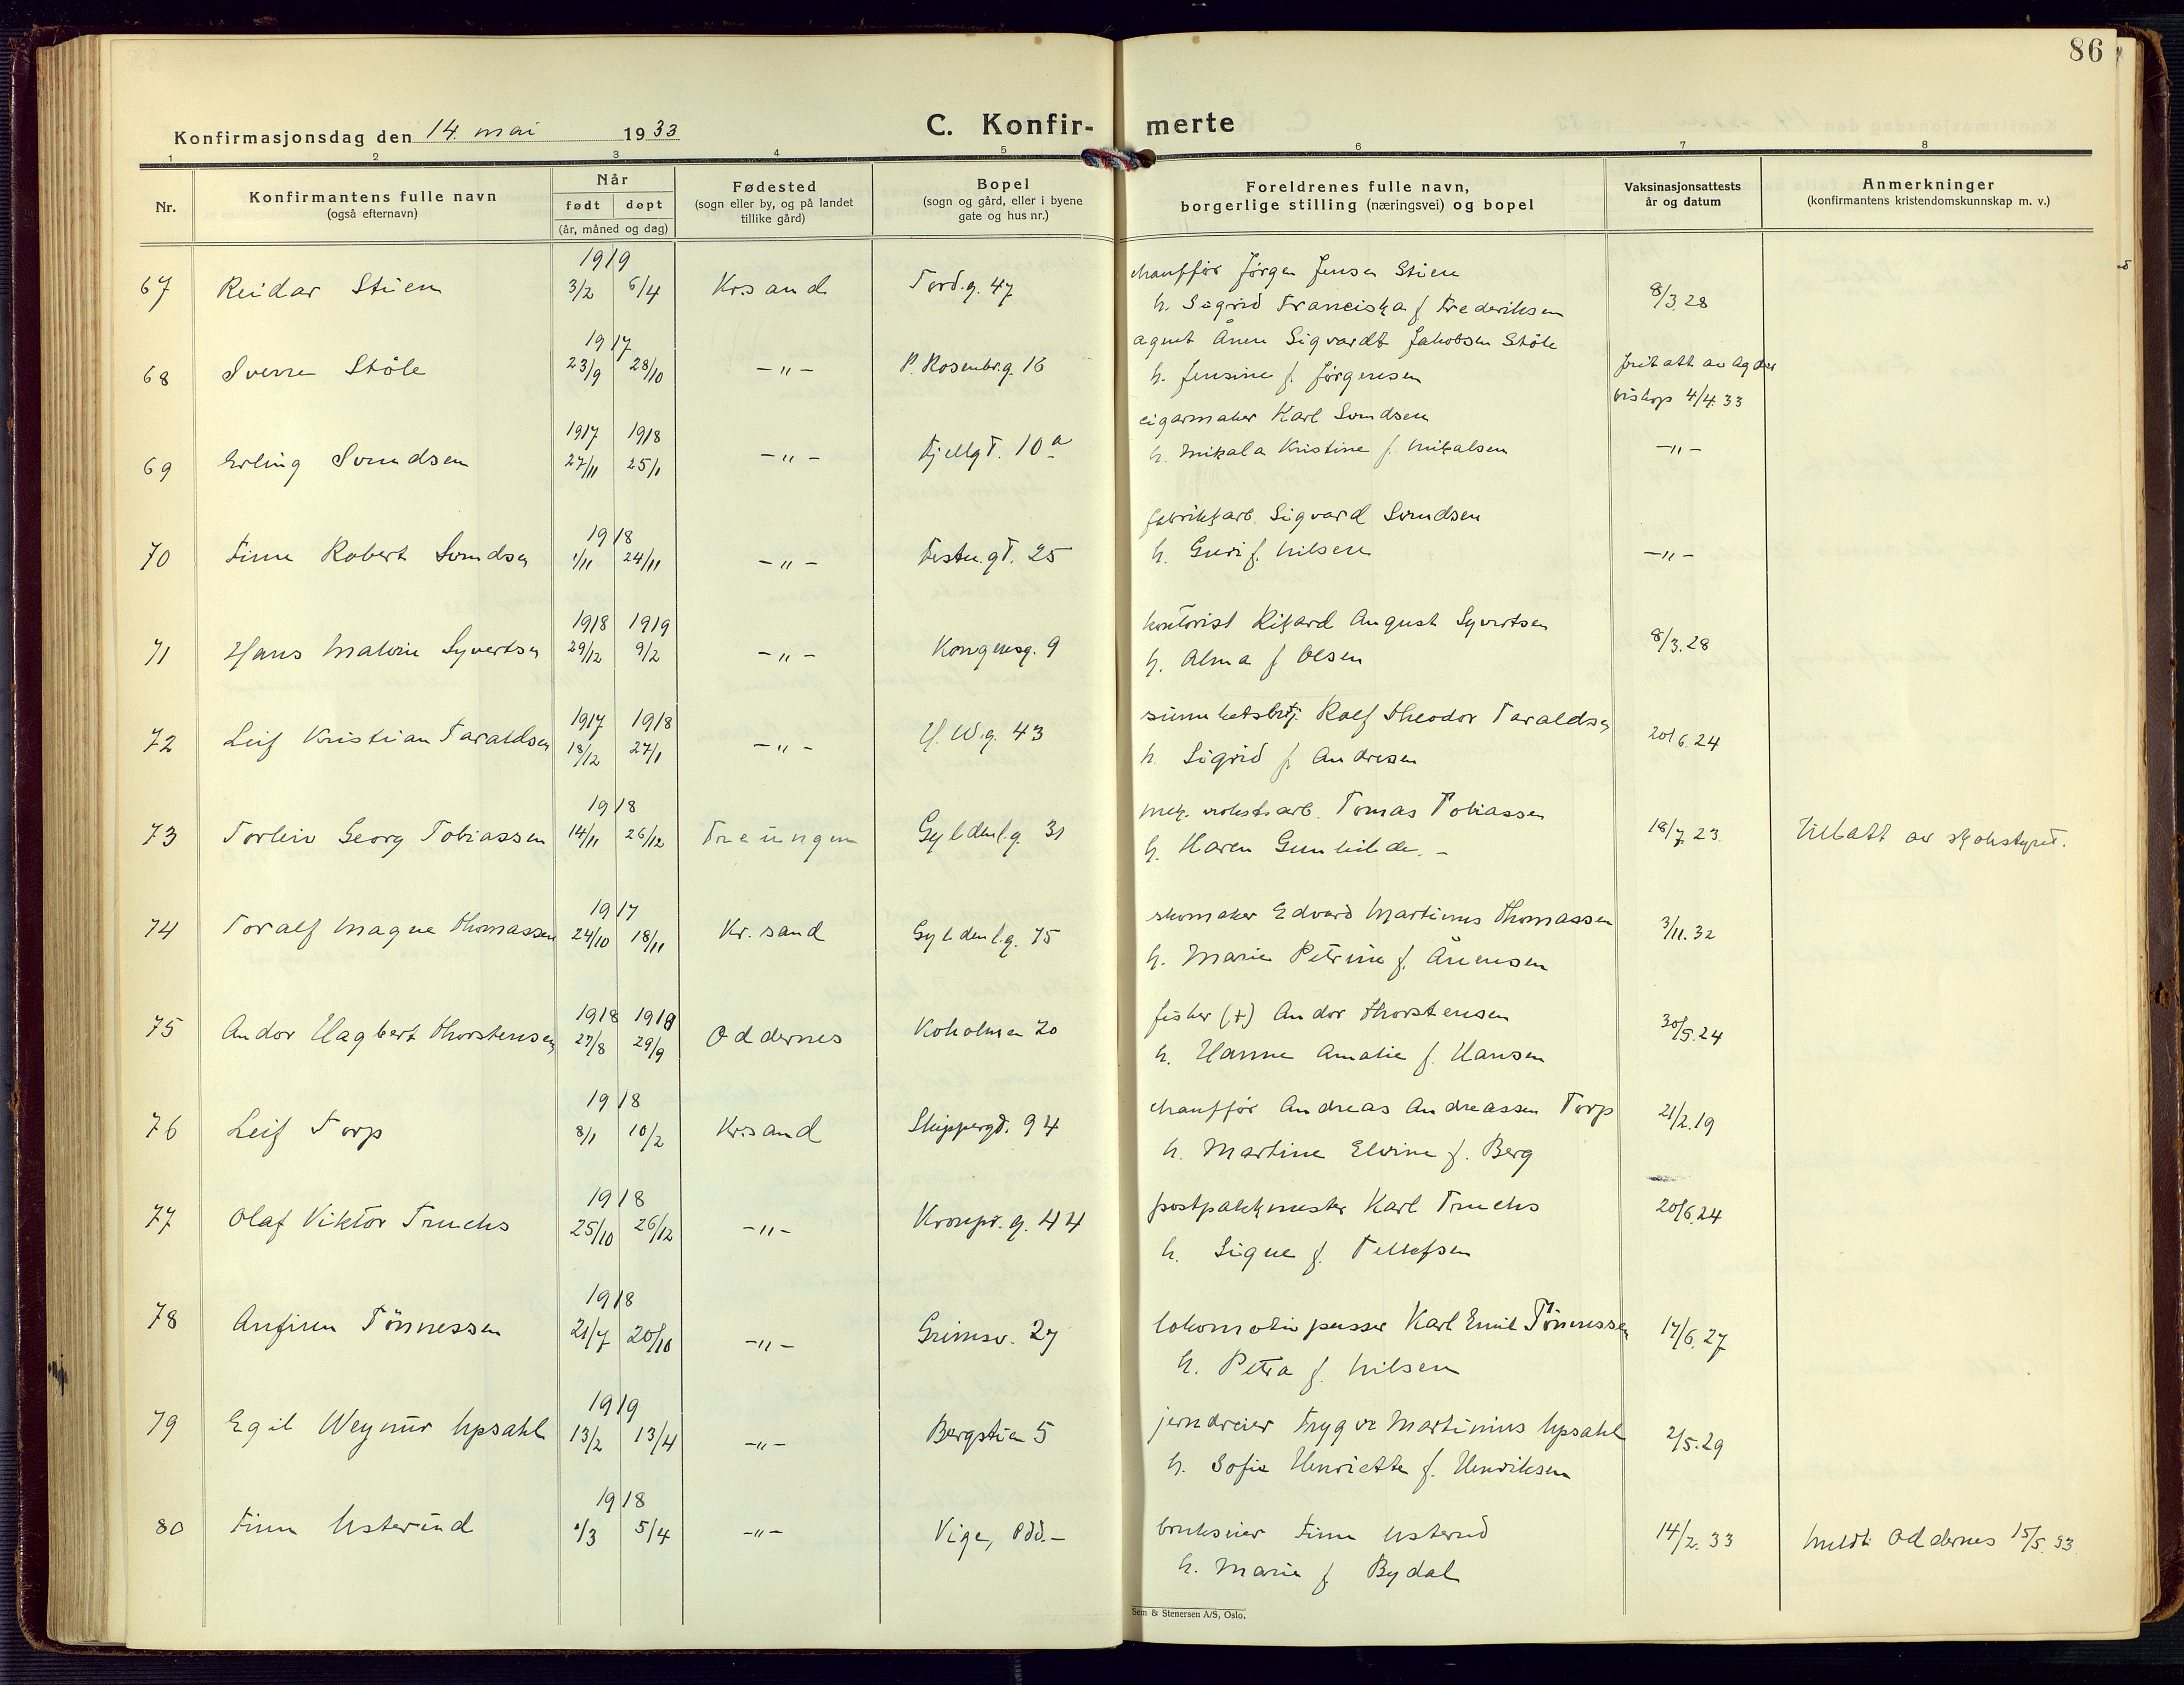 86
Konfirmasjonsdag den 14. mai 1933
C. Konfir- merte
1 2 3 4 5 6 7 8
Nr.
Konfirmantens fulle navn
(også efternavn)
Når
født døpt
(år, måned og dag)
Fødested
(sogn eller by, og på landet
tillike gård)
Bopel
(sogn og gård, eller i byene
gate og hus nr.)
Foreldrenes fulle navn,
borgerlige stilling (næringsvei) og bopel
Vaksinasjonsattests
år og datum
Anmerkninger
(konfirmantens kristendomskunnskap m. v.)
1919 chauffør Jørgen Jensen Stien
67 Reidar Stien 3/2 6/4 Kr.sand Tord.g. 47 8/3.28
h. Sigrid Franciska f. Frederiksen
1917 agent Ånen Sigvardt Jakobsen Støle
68 Sverre Støle 23/9 28/10 -"- P. Rosenbr.g. 16 fritatt av Agder
h. Jensine f. Jørgensen bishop 4/4.33
1917 1918 cigarmaker Karl Svendsen
69 Erling Svendsen 27/11 25/1 -"- Fjellgt. 10a h. Mikala Kristine f. Mikalsen -"-
1918 fabrikkarb. Sigvard Svendsen
70 Finn Robert Svendsen 1/11 24/11 -"- Festn.gt. 25 h. Guri f. Nilsen -"-
1918 1919 kontorist Rikard August Syvertsen
71 Hans Malvin Syvertsen 29/12 9/2 -"- Kongensg. 9 8/3.28
h. Alma f. Olsen
1917 1918 Rolf Theodor Taraldsen
72 Leif Kristian Taraldsen 18/12 27/1 -"- H. W.g. 43 20/6.24
h. Sigrid f. Andresen
1918 mek. verkstsarb. Tomas Tobiassen
73 Torleiv Georg Tobiassen 14/11 26/12 Treungen Gyldenl.g. 31 18/7.23. tillatt av skolestyret.
h. Karen Gunhilde. -
1917 skomaker Edvard Martinus Thomassen
74 Toralf Magne Thomassen 24/10 18/11 Kr.sand Gyldenl.g. 75 3/11.32
h. Marie Petrine f. Ånensen
1918 1918 fisker (+) Andor Thorstensen
75 Andor Hagbert Thorstensen 27/8 29/9 Oddernes Koholmen 20 30/5.24
h. Hanne Amalie f. Hansen
1918 chauffør Andreas Andreassen Torp
76 Leif Torp 8/1 10/2 Kr.sand Skippergt. 94 21/2.19
h. Martine Elvine f. Berg
1918 postpakkmester Karl Truchs
77 Olaf Viktor Truchs 25/10 26/12 -"- Kronpr.g. 44 20/6.24
h. Signe f. Tellefsen
1918
78 Anfinn Tönnessen 21/7 20/10 -"- Grimsv. 27 lokomotivpusser Karl Emil Tönnessen 17/6.27
h. Petra f. Nilsen
1919 jerndreier Trygve Martinius Upsahl
79 Egil Weynür Upsahl 13/2 13/4 -"- Bergstien 5 2/5.29
h. Sofie Henriette f. Henriksen
1918
80 Finn Usterud 1/3 5/4 -"- Vige, Odd.- brukseier Finn Usterud 14/2.33 meldt Oddernes 15/5.33
h. Marie f. Bydal
Sem & Stenersen A/S, Oslo.